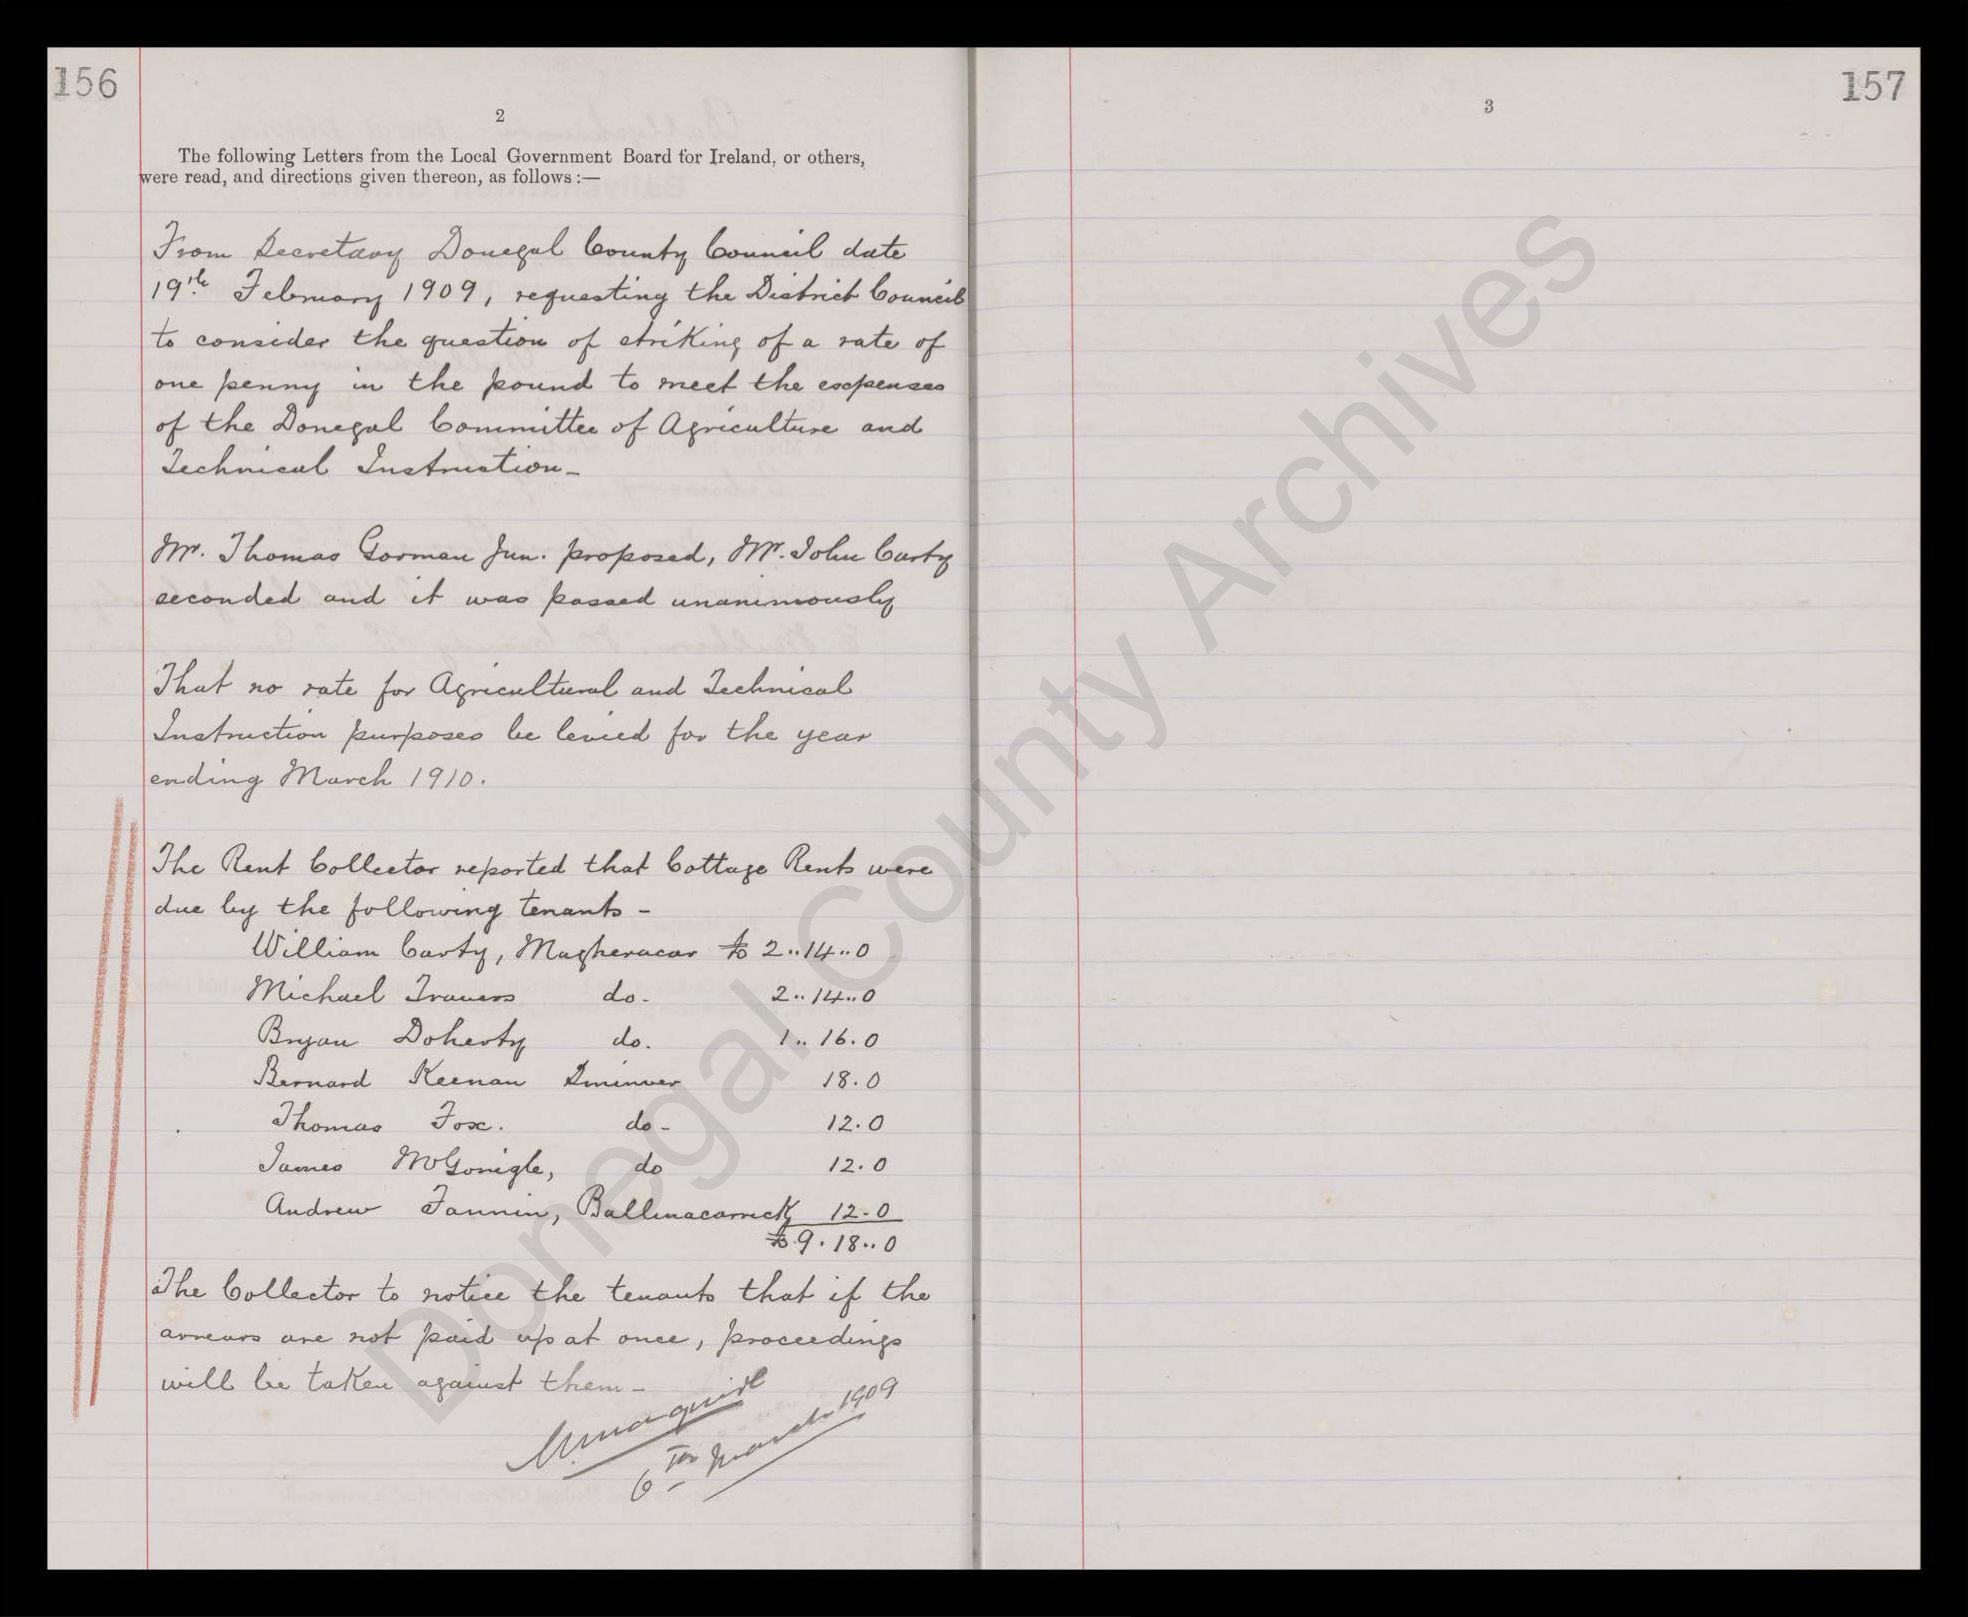 156
2
The following Letters from the Local Government Board for Ireland, or others,
were read, and directions given thereon, as follows :—
From Secretary Donegal County Council date
19th February 1909, requesting the District Council
to consider the question of striking of a rate of
one penny in the pound to meet the expenses
of the Donegal Committee of Agriculture and
Technical Instruction-
Mr. Thomas Gorman Jun. proposed, Mr. John Carty
seconded and it was passed unanimously
That no rate for Agricultural and Technical
Instruction purposes be levied for the year
ending March 1910.
The Rent Collector reported that Cottage Rents were
due by the following tenants -
William Carty, Magheracar £ 2..14..0
Michael Travers do. 2..14..0
Bryan Doherty do. 1..16.0
Bernard Keenan 18.0
Thomas Fox. do- 12.0
James McGonigle, do 12.0
Andrew Fannin, Ballinacarrick 12.0
£9.18..0
The Collector to notice the tenants that if the
arrears are not paid up at once, proceedings
will be taken against them-
6th March 1909
157
3
Donegal County Archives